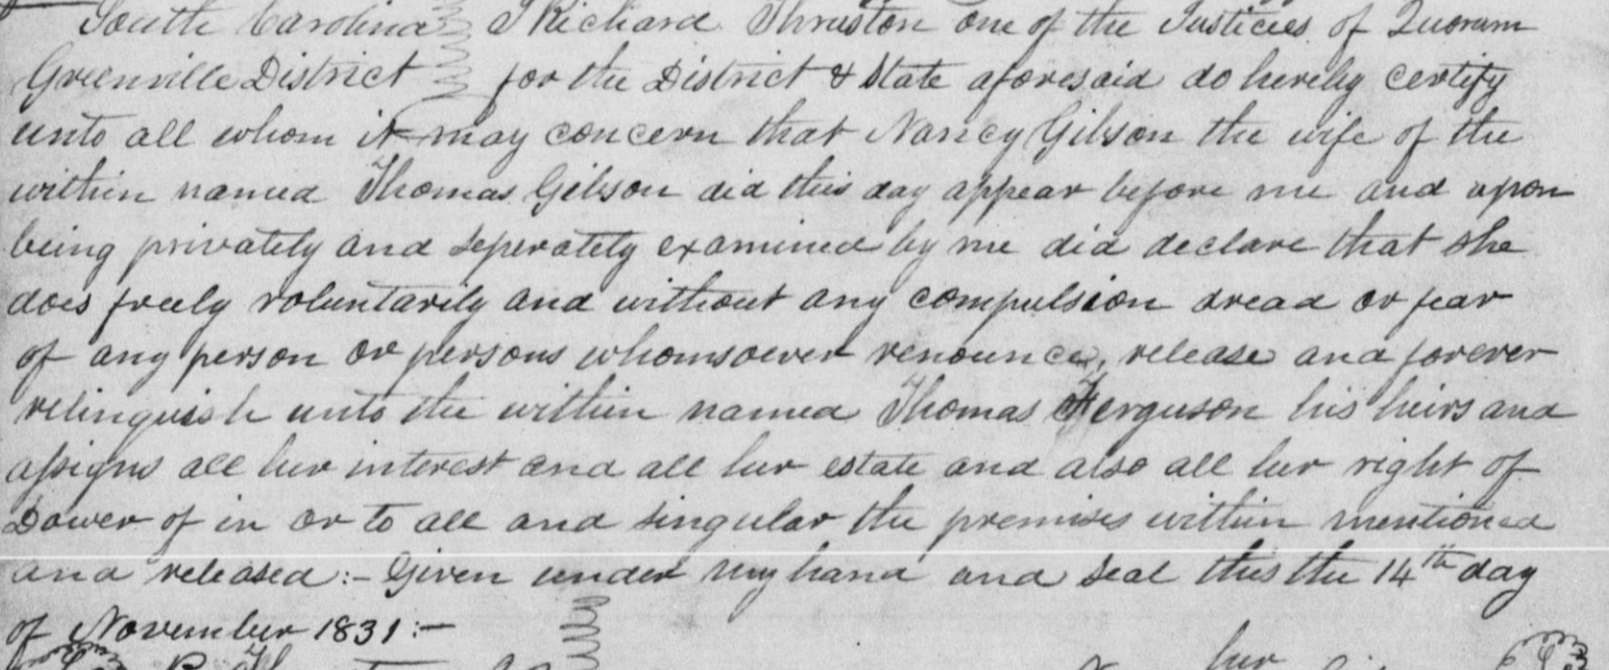 South Carolina I Richard Thruston one of the Justices of Quorum
Greenville District for the District & State aforesaid do hereby certify
unto all whom it may concern that Nancy Gibson the wife of the
within named Thomas Gibson did this day appear before me and upon
being privately and seperately examined by me did declare that she
does freely voluntarily and without any compulsion dread or fear
of any person or persons whomsoever renounce, release and forever
relinquish unto the within named Thomas Ferguson his heirs and
assigns all her interest and all her estate and also all her right of
Dower of in or to all and singular the premises within mentioned
and released:- Given under my hand and seal this the 14th day
of November 1831:-
her